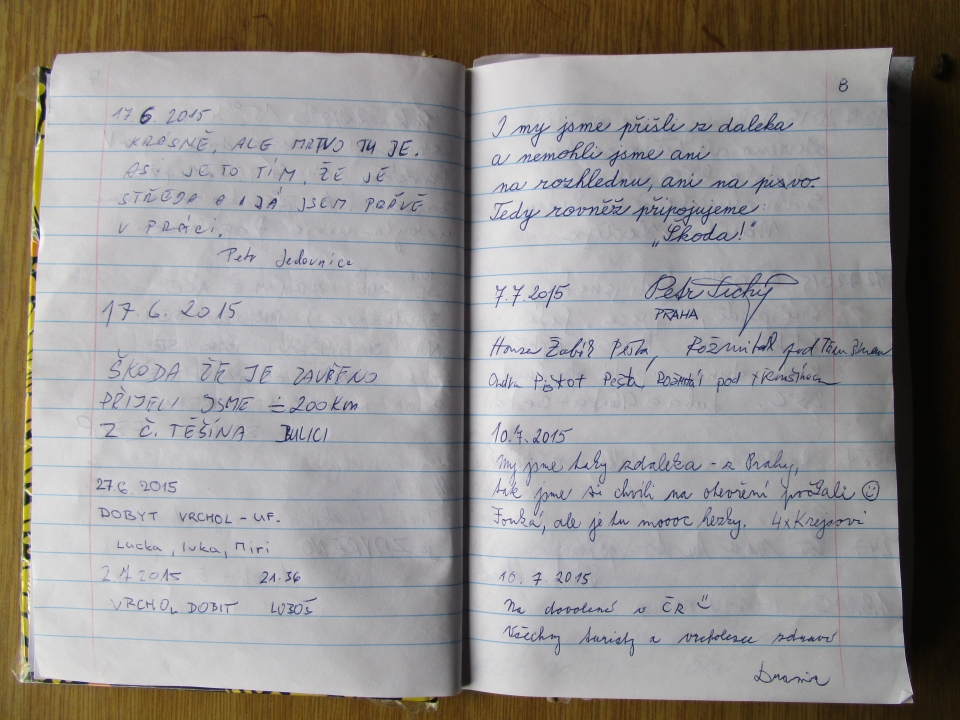 17.6. 2015
KRÁSNĚ, ALE MRTVO TU JE.
ASI JE TO TÍM, ŽE JE
STŘEDA A JÁ JSEM PRÁVĚ
V PRÁCI.
Petr Jedovnice
17. 6. 2015
ŠKODA ŽE JE ZAVŘENO
PŘIJELI JSME ÷ 200 Km
Z Č. TĚŠÍNA
27.6 2015
DOBYT VRCHOL - UF.
Lucka, Ivka, Miri
2.7 2015 21.36
VRCHOL DOBIT LUBOŠ
8
I my jsme přišli z daleka
a nemohli jsme ani
na rozhlednu, ani na pivo.
Tedy rovněž připojujeme:
„Škoda!"
7.7.2015 Petr Tichý
PRAHA
Honza Pešta, Rožmitál pod
Ondra Pešta, pod
10.7.2015
My jsme taky zdaleka - z Prahy,
tak jsme si chvíli na otevření počkali ☺
Fouká, ale je tu moooc hezky. 4x Krejsovi
16. 7. 2015
Na dovolené v ČR
Všechny turisty a vrcholesce zdraví